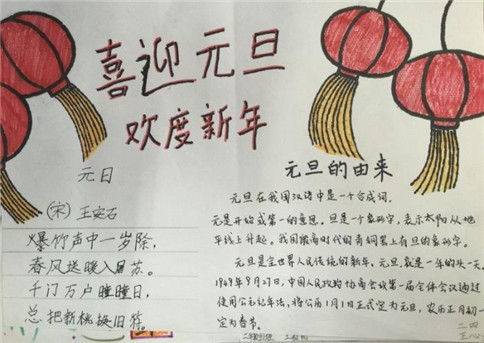 喜迎元旦
欢度新年
元日
(宋) 王安石
爆竹声中一岁除,
春风送暖入屠苏。
千门万户曈曈日,
总把新桃换旧符。
元旦的由来
元旦在我国汉语中是一个合成词。
元是开始或第一的意思。旦是一个象形字,表示太阳从地
平线上升起。我国殷商时代的青铜器上有旦的象形字。
元旦是全世界人民传统的新年,元旦,就是一年的头一天。
1949年9月27日,中国人民政协协商会议第一届全体会议通过
使用公元纪年法,将公历1月1日正式定为元旦,农历正月初一
定为春节。
二四